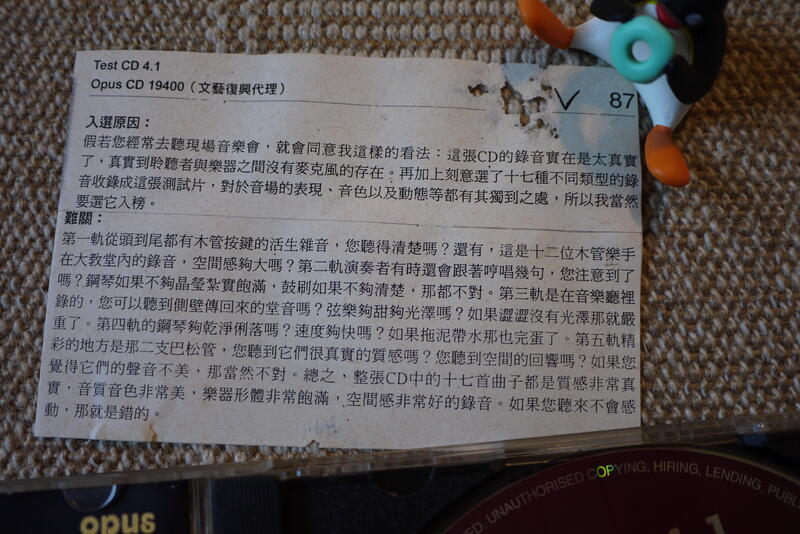 Test CD 4.1
Opus CD 19400（文藝復興代理）
87
入選原因：
假若您經常去聽現場音樂會，就會同意我這樣的看法：這張CD的錄音實在是太真實
了，真實到聆聽者與樂器之間沒有麥克風的存在。再加上刻意選了十七種不同類型的錄
音收錄成這張測試片，對於音場的表現、音色以及動態等都有其獨到之處，所以我當然
要選它入榜。
難關：
第一軌從頭到尾都有木管按鍵的活生雜音，您聽得清楚嗎？還有，這是十二位木管樂手
在大教堂內的錄音，空間感夠大嗎？第二軌演奏者有時還會跟著哼唱幾句，您注意到了
嗎？鋼琴如果不夠晶瑩紮實飽滿，鼓刷如果不夠清楚，那都不對。第三軌是在音樂廳裡
錄的，您可以聽到側壁傳回來的堂音嗎？弦樂夠甜夠光澤嗎？如果澀澀沒有光澤那就嚴
重了。第四軌的鋼琴夠乾淨俐落嗎？速度夠快嗎？如果拖泥帶水那也完蛋了。第五軌精
彩的地方是那二支巴松管，您聽到它們很真實的質感嗎？您聽到空間的回響嗎？如果您
覺得它們的聲音不美，那當然不對。總之，整張CD中的十七首曲子都是質感非常真
實，音質音色非常美，樂器形體非常飽滿，空間感非常好的錄音。如果您聽來不會感
動，那就是錯的。
opus
ED, UNAUTHORISED COPYING, HIRING, LENDING, PUBL